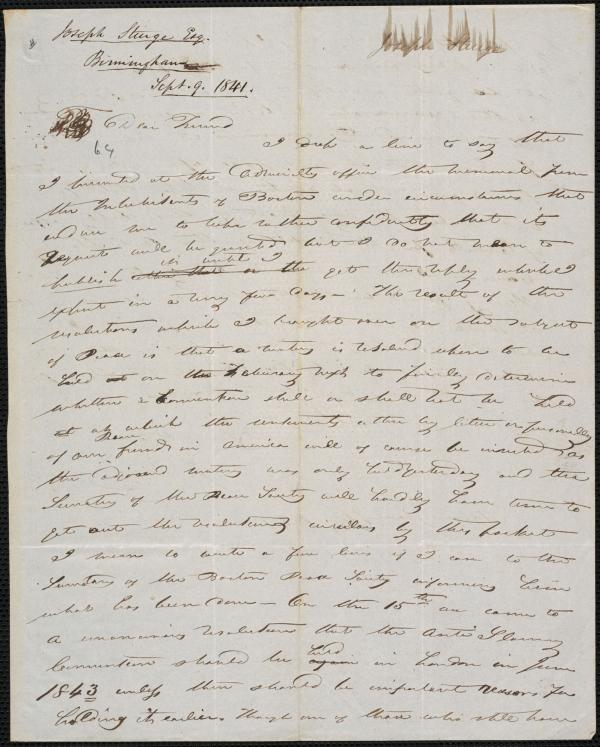 Joseph Sturge Esq.
Birmingham
Sept. 9. 1841.
Joseph Sturge
Dear Friend
64
I drop a line to say that
I presented at the Admiralty office the memorial from
the Inhabitants of Boston under circumstances that
induce me to hope rather confidently that its
requests will be granted but I do not mean to
publish it until I
get the reply which I
expect in a very few days – The result of the
resolutions which I brought over on the subject
of Peace is that a meeting is resolved upon to be
held on the February next to finally determine
whether a Convention shall or shall not be held
at which the sentiments either by letter or personally
of our Peace friends in America will of course be invited as
the adjourned meeting was only held yesterday and the
Secretary of the Peace Society will hardly have time to
get out the resolutions circulars by this packet
I mean to write a few lines if I can to the
Secretary of the Boston Peace Society informing him
what has been done – On the 15th we came to
a unanimous resolution that the Anti Slavery
Convention should be held in London in June
1843 unless there should be important reasons for
holding it earlier. Though one of those who still have